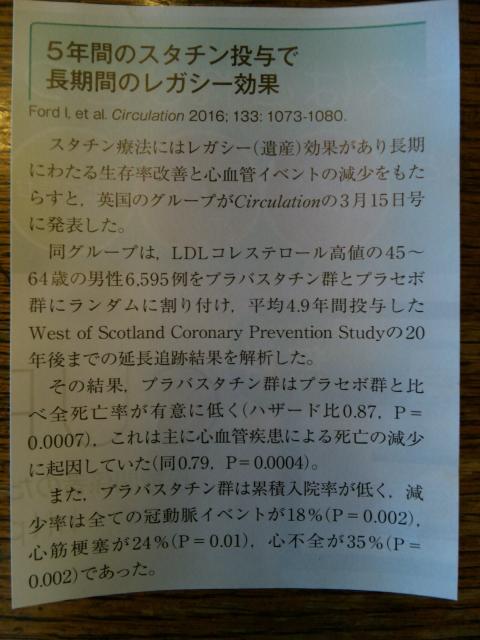 5年間のスタチン投与で
長期間のレガシー効果
Ford I, et al. Circulation 2016; 133: 1073-1080.
スタチン療法にはレガシー(遺産)効果があり長期
にわたる生存率改善と心血管イベントの減少をもた
らすと，英国のグループがCirculationの3月15日号
に発表した。
同グループは，LDLコレステロール高値の45～
64歳の男性6,595例をプラバスタチン群とプラセボ
群にランダムに割り付け，平均4.9年間投与した
West of Scotland Coronary Prevention Studyの20
年後までの延長追跡結果を解析した。
その結果，プラバスタチン群はプラセボ群と比
べ全死亡率が有意に低く(ハザード比0.87，P＝
0.0007)，これは主に心血管疾患による死亡の減少
に起因していた(同0.79，P＝0.0004)。
また，プラバスタチン群は累積入院率が低く，減
少率は全ての冠動脈イベントが18％(P＝0.002)，
心筋梗塞が24％(P＝0.01)，心不全が35％(P＝
0.002)であった。